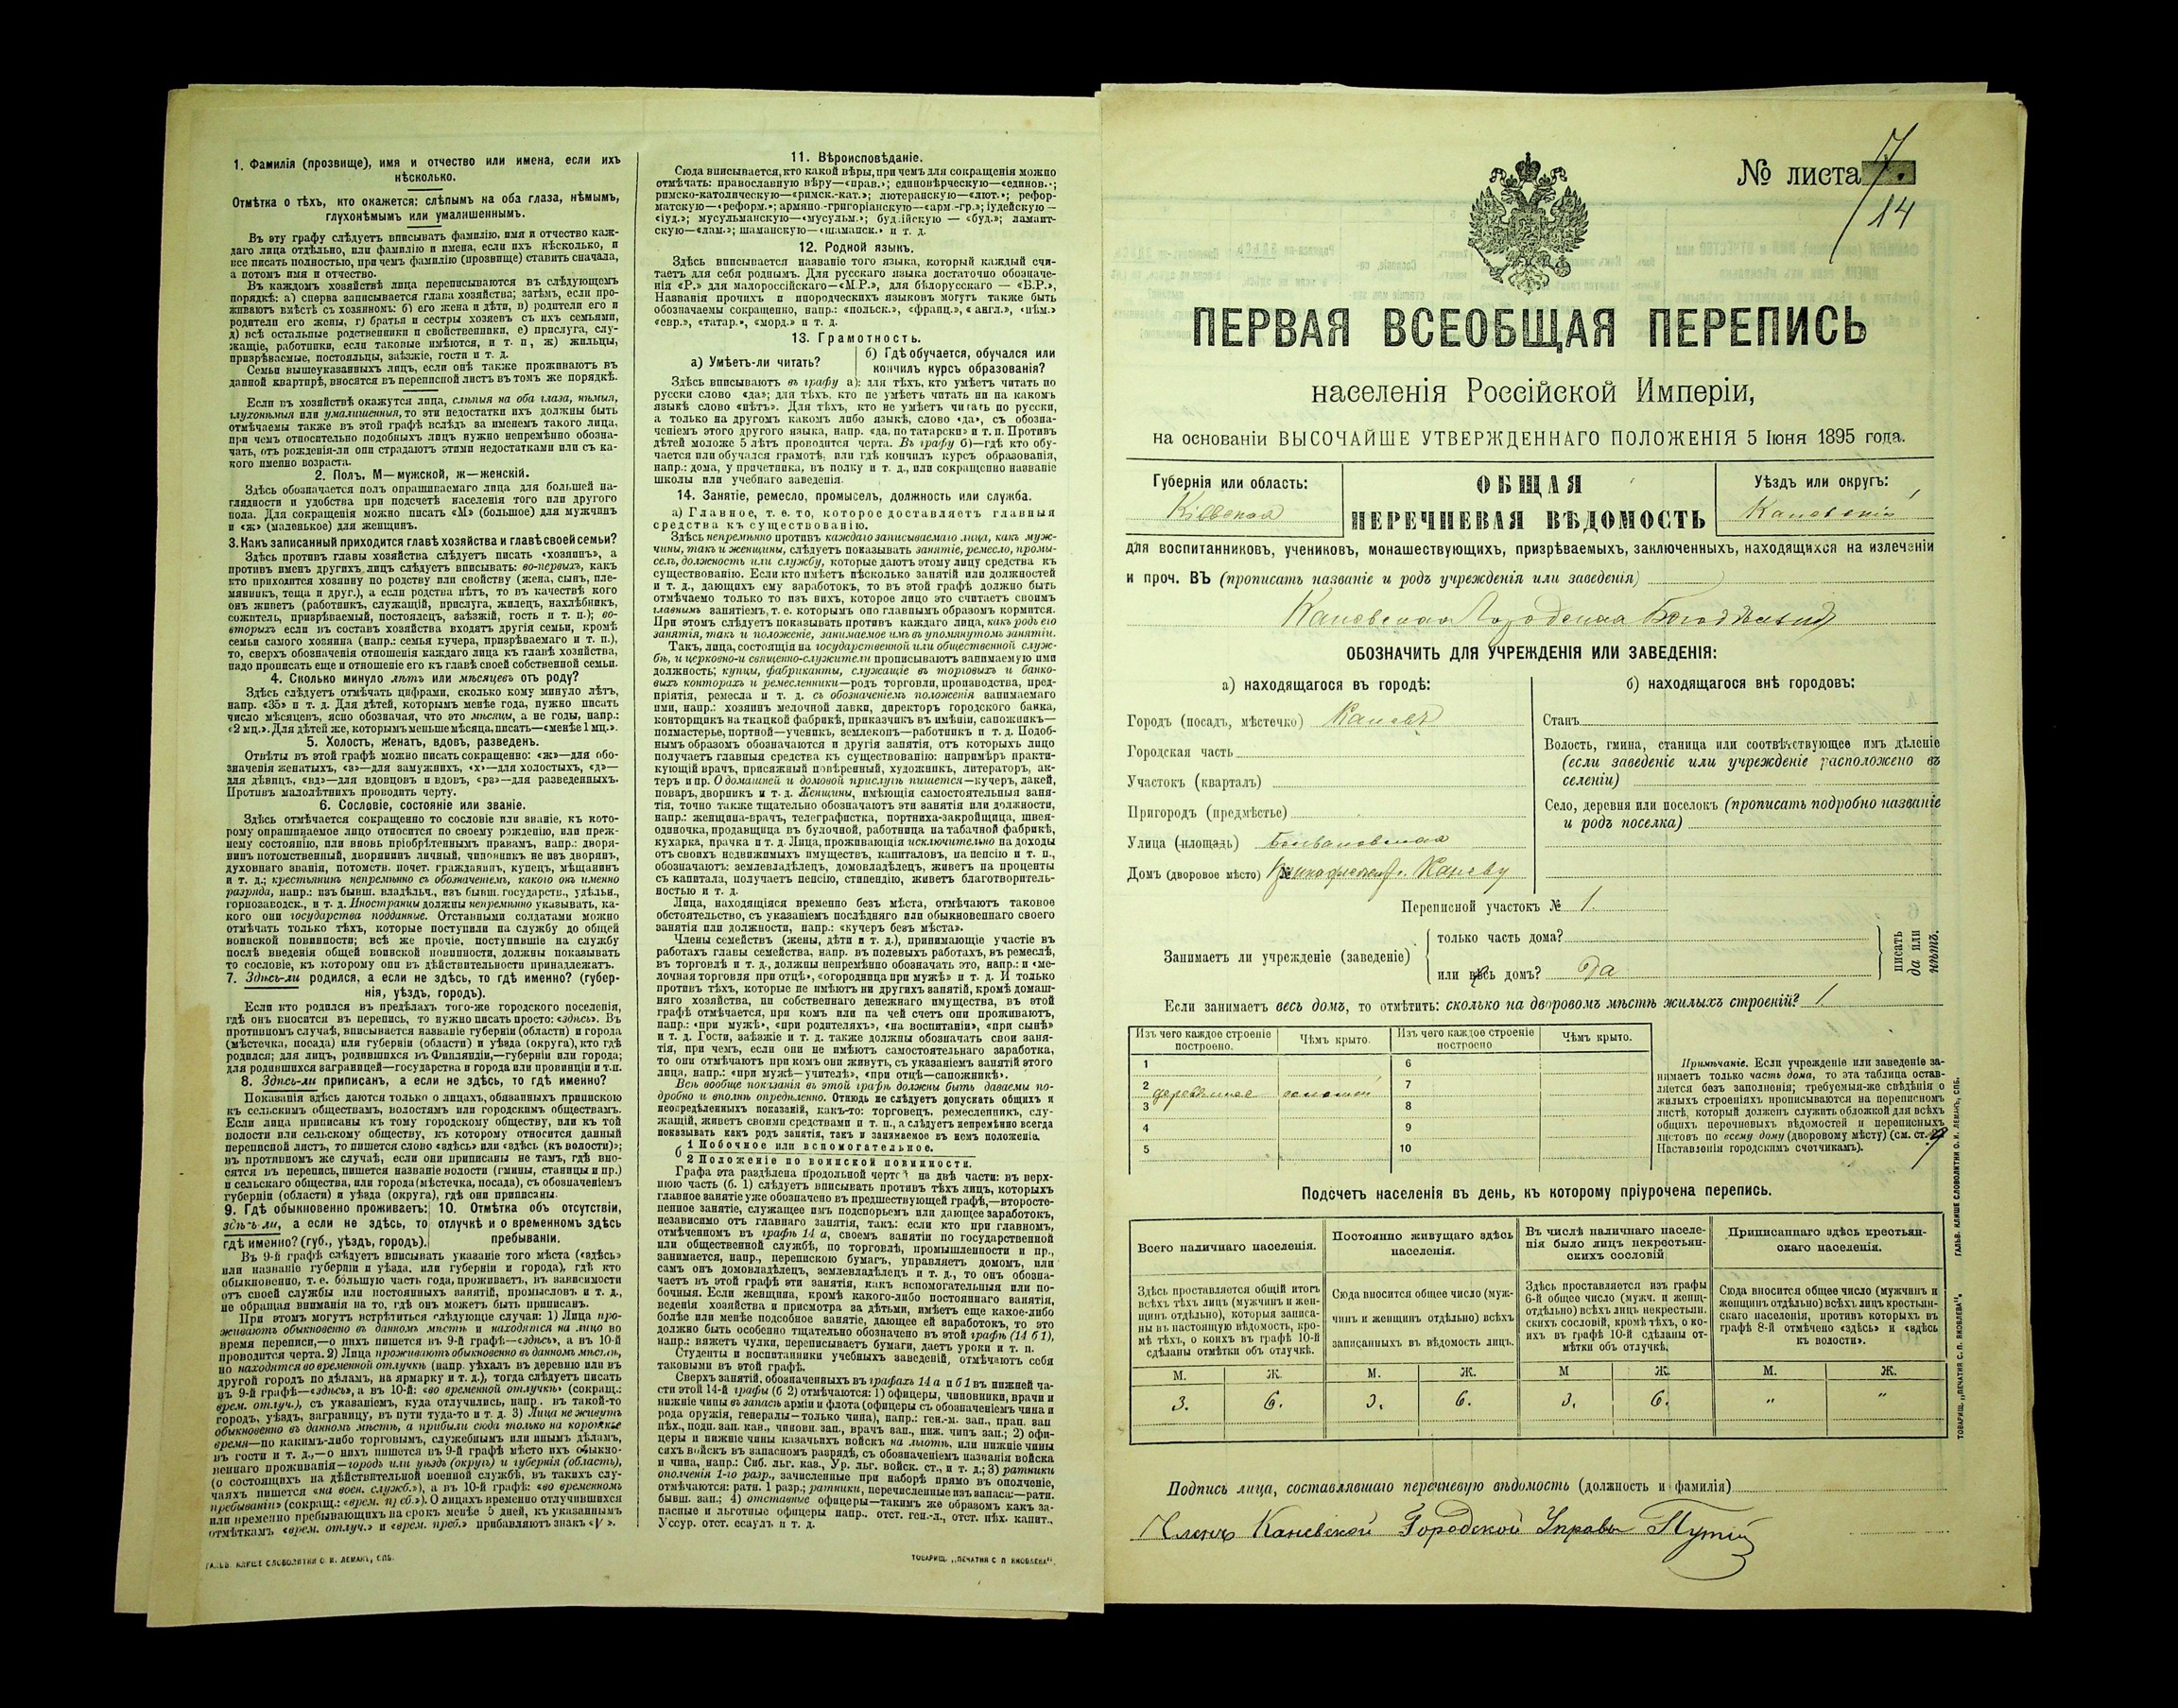 1. Фамилія (прозвище), имя и отчество или имена, если ихъ
нѣсколько.
Отмѣтка о тѣхъ, кто окажется: слѣпымъ на оба глаза, нѣмымъ,
глухонѣмымъ или умалишеннымъ.
Въ эту графу слѣдуетъ вписывать фамилію, имя и отчество каж-
даго лица отдѣльно, или фамилію и имена, если ихъ нѣсколько, и
все писать полностью, при чемъ фамилію (прозвище) ставить сначала,
а потомъ имя и отчество.
Въ каждомъ хозяйствѣ лица переписываются въ слѣдующемъ
порядкѣ: а) сперва записывается глава хозяйства; затѣмъ, если про-
живаютъ вмѣстѣ съ хозяиномъ: б) его жена и дѣти, в) родители его и
родители его жены, г) братья и сестры хозяевъ съ ихъ семьями,
д) всѣ остальные родственники и свойственники, е) прислуга, слу-
жащіе, работники, если таковые имѣются, и т. п., ж) жильцы,
призрѣваемые, постояльцы, заѣзжіе, гости и т. д.
Семьи вышеуказанныхъ лицъ, если онѣ также проживаютъ въ
данной квартирѣ, вносятся въ переписной листъ въ томъ же порядкѣ.
Если въ хозяйствѣ окажутся лица, слѣпыя на оба глаза, нѣмыя,
глухонѣмыя или умалишенныя, то эти недостатки ихъ должны быть
отмѣчаемы также въ этой графѣ вслѣдъ за именемъ такого лица,
при чемъ относительно подобныхъ лицъ нужно непремѣнно обозна-
чать, отъ рожденія-ли они страдаютъ этими недостатками или съ ка-
кого именно возраста.
2. Полъ, М—мужской, ж—женскій.
Здѣсь обозначается полъ опрашиваемаго лица для большей на-
глядности и удобства при подсчетѣ населенія того или другого
пола. Для сокращенія можно писать «М» (большое) для мужчинъ
и «ж» (маленькое) для женщинъ.
3. Какъ записанный приходится главѣ хозяйства и главѣ своей семьи?
Здѣсь противъ главы хозяйства слѣдуетъ писать «хозяинъ», а
противъ именъ другихъ лицъ слѣдуетъ вписывать: во-первыхъ, какъ
кто приходится хозяину по родству или свойству (жена, сынъ, пле-
мянникъ, теща и друг.), а если родства нѣтъ, то въ качествѣ кого
онъ живетъ (работникъ, служащій, прислуга, жилецъ, нахлѣбникъ,
сожитель, призрѣваемый, постоялецъ, заѣзжій, гость и т. п.); во-
вторыхъ если въ составъ хозяйства входятъ другія семьи, кромѣ
семьи самого хозяина (напр.: семья кучера, призрѣваемаго и т. п.),
то, сверхъ обозначенія отношенія каждаго лица къ главѣ хозяйства,
надо прописать еще и отношеніе его къ главѣ своей собственной семьи.
4. Сколько минуло лѣтъ или мѣсяцевъ отъ роду?
Здѣсь слѣдуетъ отмѣчать цифрами, сколько кому минуло лѣтъ,
напр. «35» и т. д. Для дѣтей, которымъ менѣе года, нужно писать
число мѣсяцевъ, ясно обозначая, что это мѣсяцы, а не годы, напр.:
«2 мц.». Для дѣтей же, которымъ меньше мѣсяца, писать—«менѣе 1 мц.».
5. Холостъ, женатъ, вдовъ, разведенъ.
Отвѣты въ этой графѣ можно писать сокращенно: «ж»—для обо-
значенія женатыхъ, «з»—для замужнихъ, «х»—для холостыхъ, «д»—
для дѣвицъ, «вд»—для вдовцовъ и вдовъ, «рз»—для разведенныхъ.
Противъ малолѣтнихъ проводить черту.
6. Сословіе, состояніе или званіе.
Здѣсь отмѣчается сокращенно то сословіе или званіе, къ кото-
рому опрашиваемое лицо относится по своему рожденію, или преж-
нему состоянію, или вновь пріобрѣтеннымъ правамъ, напр.: дворя-
нинъ потомственный, дворянинъ личный, чиновникъ не изъ дворянъ,
духовнаго званія, потомств. почет. гражданинъ, купецъ, мѣщанинъ
и т. д.; крестьянинъ непремѣнно съ обозначеніемъ, какого онъ именно
разряда, напр.: изъ бывш. владѣльч., изъ бывш. государств., удѣльн.,
горнозаводск., и т. д. Иностранцы должны непремѣнно указывать, ка-
кого они государства подданные. Отставными солдатами можно
отмѣчать только тѣхъ, которые поступили на службу до общей
воинской повинности; всѣ же прочіе, поступившіе на службу
послѣ введенія общей воинской повинности, должны показывать
то сословіе, къ которому они въ дѣйствительности принадлежатъ.
7. Здѣсь-ли родился, а если не здѣсь, то гдѣ именно? (губер-
нія, уѣздъ, городъ).
Если кто родился въ предѣлахъ того-же городского поселенія,
гдѣ онъ вносится въ перепись, то нужно писать просто: «здѣсь». Въ
противномъ случаѣ, вписывается названіе губерніи (области) и города
(мѣстечка, посада) или губерніи (области) и уѣзда (округа), кто гдѣ
родился; для лицъ, родившихся въ Финляндіи,—губерніи или города;
для родившихся заграницей—государства и города или провинціи и т.п.
8. Здѣсь-ли приписанъ, а если не здѣсь, то гдѣ именно?
Показанія здѣсь даются только о лицахъ, обязанныхъ припискою
къ сельскимъ обществамъ, волостямъ или городскимъ обществамъ.
Если лица приписаны къ тому городскому обществу, или къ той
волости или сельскому обществу, къ которому относится данный
переписной листъ, то пишется слово «здѣсь» или «здѣсь (къ волости)»;
въ противномъ же случаѣ, если они приписаны не тамъ, гдѣ вно-
сятся въ перепись, пишется названіе волости (гмины, станицы и пр.)
и сельскаго общества, или города (мѣстечка, посада), съ обозначеніемъ
губерніи (области) и уѣзда (округа), гдѣ они приписаны.
9. Гдѣ обыкновенно проживаетъ: здѣсь-ли, а если не здѣсь, то гдѣ именно? (губ., уѣздъ, городъ).
10. Отмѣтка объ отсутствіи, отлучкѣ и о временномъ здѣсь пребываніи.
Въ 9-й графѣ слѣдуетъ вписывать указаніе того мѣста («здѣсь»
или названіе губерніи и уѣзда, или губерніи и города), гдѣ кто
обыкновенно, т. е. большую часть года, проживаетъ, въ зависимости
отъ своей службы или постоянныхъ занятій, промысловъ и т. д.,
не обращая вниманія на то, гдѣ онъ можетъ быть приписанъ.
При этомъ могутъ встрѣтиться слѣдующіе случаи: 1) Лица про-
живаютъ обыкновенно въ данномъ мѣстѣ и находятся на лицо во
время переписи,—о нихъ пишется въ 9-й графѣ—«здѣсь», а въ 10-й
проводится черта. 2) Лица проживаютъ обыкновенно въ данномъ мѣстѣ,
но находятся во временной отлучкѣ (напр. уѣхалъ въ деревню или въ
другой городъ по дѣламъ, на ярмарку и т. д.), тогда слѣдуетъ писать
въ 9-й графѣ—«здѣсь», а въ 10-й: «во временной отлучкѣ» (сокращ.:
врем. отлуч.), съ указаніемъ, куда отлучились, напр. въ такой-то
городъ, уѣздъ, заграницу, въ пути туда-то и т. д. 3) Лица не живутъ
обыкновенно въ данномъ мѣстѣ, а прибыли сюда только на короткое
время—по какимъ-либо торговымъ, служебнымъ или инымъ дѣламъ,
въ гости и т. д.,—о нихъ пишется въ 9-й графѣ мѣсто ихъ обыкно-
веннаго проживанія—городъ или уѣздъ (округъ) и губернія (область),
(о состоящихъ на дѣйствительной военной службѣ, въ такихъ слу-
чаяхъ пишется «на воен. служб.»), а въ 10-й графѣ: «во временномъ
пребываніи» (сокращ.: «врем. преб.»). О лицахъ временно отлучившихся
или временно пребывающихъ на срокъ менѣе 5 дней, къ указаннымъ
отмѣткамъ «врем. отлуч.» и «врем. преб.» прибавляютъ знакъ «V».
ГАЛЬВ. КЛИШЕ СЛОВОЛИТНИ О. И. ЛЕМАНЪ, СПБ.
11. Вѣроисповѣданіе.
Сюда вписывается, кто какой вѣры, при чемъ для сокращенія можно
отмѣчать: православную вѣру—«прав.»; единовѣрческую—«единов.»;
римско-католическую—«римск.-кат.»; лютеранскую—«лют.»; рефор-
матскую—«реформ.»; армяно-григоріанскую—«арм.-гр.»; іудейскую—
«іуд.»; мусульманскую—«мусульм.»; буддійскую — «буд.»; ламаит-
скую—«лам.»; шаманскую—«шаманск.» и т. д.
12. Родной языкъ.
Здѣсь вписывается названіе того языка, который каждый счи-
таетъ для себя роднымъ. Для русскаго языка достаточно обозначе-
нія «Р.» для малороссійскаго—«М.Р.», для бѣлорусскаго — «Б.Р.»,
Названія прочихъ и инородческихъ языковъ могутъ также быть
обозначаемы сокращенно, напр.: «польск.», «франц.», «англ.», «нѣм.»
«евр.», «татар.», «морд.» и т. д.
13. Грамотность.
а) Умѣетъ-ли читать?
б) Гдѣ обучается, обучался или
кончилъ курсъ образованія?
Здѣсь вписываютъ въ графу а): для тѣхъ, кто умѣетъ читать по
русски слово «да»; для тѣхъ, кто не умѣетъ читать ни на какомъ
языкѣ слово «нѣтъ». Для тѣхъ, кто не умѣетъ читать по русски,
а только на другомъ какомъ либо языкѣ, слово «да», съ обозна-
ченіемъ этого другого языка, напр. «да, по татарски» и т. п. Противъ
дѣтей моложе 5 лѣтъ проводится черта. Въ графу б)—гдѣ кто обу-
чается или обучался грамотѣ, или гдѣ кончилъ курсъ образованія,
напр.: дома, у причетника, въ полку и т. д., или сокращенно названіе
школы или учебнаго заведенія.
14. Занятіе, ремесло, промыселъ, должность или служба.
а) Главное, т. е. то, которое доставляетъ главныя
средства къ существованію.
Здѣсь непремѣнно противъ каждаго записываемаго лица, какъ муж-
чины, такъ и женщины, слѣдуетъ показывать занятіе, ремесло, промы-
селъ, должность или службу, которые даютъ этому лицу средства къ
существованію. Если кто имѣетъ нѣсколько занятій или должностей
и т. д., дающихъ ему заработокъ, то въ этой графѣ должно быть
отмѣчаемо только то изъ нихъ, которое лицо это считаетъ своимъ
главнымъ занятіемъ, т. е. которымъ оно главнымъ образомъ кормится.
При этомъ слѣдуетъ показывать противъ каждаго лица, какъ родъ его
занятія, такъ и положеніе, занимаемое имъ въ упомянутомъ занятіи.
Такъ, лица, состоящія на государственной или общественной служ-
бѣ, и церковно-и священно-служители прописываютъ занимаемую ими
должность; купцы, фабриканты, служащіе въ торговыхъ и банко-
выхъ конторахъ и ремесленники—родъ торговли, производства, пред-
пріятія, ремесла и т. д. съ обозначеніемъ положенія занимаемаго
ими, напр.: хозяинъ мелочной лавки, директоръ городского банка,
конторщикъ на ткацкой фабрикѣ, приказчикъ въ имѣніи, сапожникъ—
подмастерье, портной—ученикъ, землекопъ—работникъ и т. д. Подоб-
нымъ образомъ обозначаются и другія занятія, отъ которыхъ лицо
получаетъ главныя средства къ существованію: напримѣръ практи-
кующій врачъ, присяжный повѣренный, художникъ, литераторъ, ак-
теръ и пр. О домашней и домовой прислугѣ пишется—кучеръ, лакей,
поваръ, дворникъ и т. д. Женщины, имѣющія самостоятельныя заня-
тія, точно также тщательно обозначаютъ эти занятія или должности,
напр.: женщина-врачъ, телеграфистка, портниха-закройщица, швея-
одиночка, продавщица въ булочной, работница на табачной фабрикѣ,
кухарка, прачка и т. д. Лица, проживающія исключительно на доходы
отъ своихъ недвижимыхъ имуществъ, капиталовъ, на пенсію и т. п.,
обозначаютъ: землевладѣлецъ, домовладѣлецъ, живетъ на проценты
съ капитала, получаетъ пенсію, стипендію, живетъ благотворитель-
ностью и т. д.
Лица, находящіяся временно безъ мѣста, отмѣчаютъ таковое
обстоятельство, съ указаніемъ послѣдняго или обыкновеннаго своего
занятія или должности, напр.: «кучеръ безъ мѣста».
Члены семействъ (жены, дѣти и т. д.), принимающіе участіе въ
работахъ главы семейства, напр. въ полевыхъ работахъ, въ ремеслѣ,
въ торговлѣ и т. д., должны непремѣнно обозначать это, напр.: и «ме-
лочная торговля при отцѣ», «огородница при мужѣ» и т. д. И только
противъ тѣхъ, которые не имѣютъ ни другихъ занятій, кромѣ домаш-
няго хозяйства, ни собственнаго денежнаго имущества, въ этой
графѣ отмѣчается, при комъ или на чей счетъ они проживаютъ,
напр.: «при мужѣ», «при родителяхъ», «на воспитаніи», «при сынѣ»
и т. д. Гости, заѣзжіе и т. д. также должны обозначать свои заня-
тія, при чемъ, если они не имѣютъ самостоятельнаго заработка,
то они отмѣчаютъ при комъ они живутъ, съ указаніемъ занятій этого
лица, напр.: «при мужѣ—учителѣ», «при отцѣ—сапожникѣ».
Всѣ вообще показанія въ этой графѣ должны быть даваемы по-
дробно и вполнѣ опредѣленно. Отнюдь не слѣдуетъ допускать общихъ и
неопредѣленныхъ показаній, какъ-то: торговецъ, ремесленникъ, слу-
жащій, живетъ своими средствами и т. п., а слѣдуетъ непремѣнно всегда
показывать какъ родъ занятія, такъ и занимаемое въ немъ положеніе.
б 1 Побочное или вспомогательное.
2 Положеніе по воинской повинности.
Графа эта раздѣлена продольной чертой на двѣ части: въ верх-
нюю часть (б. 1) слѣдуетъ вписывать противъ тѣхъ лицъ, которыхъ
главное занятіе уже обозначено въ предшествующей графѣ,—второсте-
пенное занятіе, служащее имъ подспорьемъ или дающее заработокъ,
независимо отъ главнаго занятія, такъ: если кто при главномъ,
отмѣченномъ въ графѣ 14 а, своемъ занятіи по государственной
или общественной службѣ, по торговлѣ, промышленности и пр.,
занимается, напр., перепискою бумагъ, управляетъ домомъ, или
самъ онъ домовладѣлецъ, землевладѣлецъ и т. д., то онъ обозна-
чаетъ въ этой графѣ эти занятія, какъ вспомогательныя или по-
бочныя. Если женщина, кромѣ какого-либо постояннаго занятія,
веденія хозяйства и присмотра за дѣтьми, имѣетъ еще какое-либо
болѣе или менѣе подсобное занятіе, дающее ей заработокъ, то это
должно быть особенно тщательно обозначено въ этой графѣ (14 б 1),
напр.: вяжетъ чулки, переписываетъ бумаги, даетъ уроки и т. п.
Студенты и воспитанники учебныхъ заведеній, отмѣчаютъ себя
таковыми въ этой графѣ.
Сверхъ занятій, обозначенныхъ въ графахъ 14 а и б 1 въ нижней ча-
сти этой 14-й графы (б 2) отмѣчаются: 1) офицеры, чиновники, врачи и
нижніе чины въ запасѣ арміи и флота (офицеры съ обозначеніемъ чина и
рода оружія, генералы—только чина), напр.: ген.-м. зап., прап. зап
пѣх., подп. зап. кав., чиновн. зап., врачъ зап., ниж. чинъ зап.; 2) офи-
церы и нижніе чины казачьихъ войскъ на льготѣ, или нижніе чины
сихъ войскъ въ запасномъ разрядѣ, съ обозначеніемъ названія войска
и чина, напр.: Сиб. льг. каз., Ур. льг. войск. ст., и т. д.; 3) ратники
ополченія 1-го разр., зачисленные при наборѣ прямо въ ополченіе,
отмѣчаются: ратн. 1 разр.; ратники, перечисленные изъ запаса:—ратн.
бывш. зап.; 4) отставные офицеры—такимъ же образомъ какъ за-
пасные и льготные офицеры напр.. отст. ген.-л., отст. пѣх. капит.,
Уссур. отст. есаулъ и т. д.
ТОВАРИЩ. „ПЕЧАТНЯ С. П. ЯКОВЛЕВА“.
№ листа 7.
14
ПЕРВАЯ ВСЕОБЩАЯ ПЕРЕПИСЬ
населенія Россійской Имперіи,
на основаніи ВЫСОЧАЙШЕ УТВЕРЖДЕННАГО ПОЛОЖЕНІЯ 5 Іюня 1895 года.
Губернія или область:
Кіевская
ОБЩАЯ
ПЕРЕЧНЕВАЯ ВѢДОМОСТЬ
Уѣздъ или округъ:
Каневскій
для воспитанниковъ, учениковъ, монашествующихъ, призрѣваемыхъ, заключенныхъ, находящихся на излеченіи
и проч. ВЪ (прописать названіе и родъ учрежденія или заведенія)
Каневская Городская Богадѣльня
ОБОЗНАЧИТЬ ДЛЯ УЧРЕЖДЕНІЯ ИЛИ ЗАВЕДЕНІЯ:
а) находящагося въ городѣ:
Городъ (посадъ, мѣстечко) Каневъ
Городская часть
Участокъ (кварталъ)
Пригородъ (предмѣстье)
Улица (площадь)
Домъ (дворовое мѣсто) Каневу
б) находящагося внѣ городовъ:
Станъ
Волость, гмина, станица или соотвѣтствующее имъ дѣленіе
(если заведеніе или учрежденіе расположено въ
селеніи)
Село, деревня или поселокъ (прописать подробно названіе
и родъ поселка)
Переписной участокъ № 1.
Занимаетъ ли учрежденіе (заведеніе)
только часть дома?
или весь домъ? Да
писать
да или
нѣтъ.
Если занимаетъ весь домъ, то отмѣтить: сколько на дворовомъ мѣстѣ жилыхъ строеній? 1
Изъ чего каждое строеніе построено. Чѣмъ крыто. Изъ чего каждое строеніе построено Чѣмъ крыто.
1 6
2 деревянное соломой 7
3 8
4 9
5 10
Примѣчаніе. Если учрежденіе или заведеніе за-
нимаетъ только часть дома, то эта таблица остав-
ляется безъ заполненія; требуемыя-же свѣдѣнія о
жилыхъ строеніяхъ прописываются на переписномъ
листѣ, который долженъ служить обложкой для всѣхъ
общихъ перечневыхъ вѣдомостей и переписныхъ
листовъ по всему дому (дворовому мѣсту) (см. ст.
Наставленія городскимъ счетчикамъ).
Подсчетъ населенія въ день, къ которому пріурочена перепись.
Всего наличнаго населенія.
Постоянно живущаго здѣсь
населенія.
Въ числѣ наличнаго населе-
нія было лицъ некрестьян-
скихъ сословій.
Приписаннаго здѣсь крестьян-
скаго населенія.
Здѣсь проставляется общій итогъ
всѣхъ тѣхъ лицъ (мужчинъ и жен-
щинъ отдѣльно), которыя записа-
ны въ настоящую вѣдомость, кро-
мѣ тѣхъ, о коихъ въ графѣ 10-й
сдѣланы отмѣтки объ отлучкѣ.
Сюда вносится общее число (муж-
чинъ и женщинъ отдѣльно) всѣхъ
записанныхъ въ вѣдомость лицъ.
Здѣсь проставляется изъ графы
6-й общее число (мужч. и женщ.
отдѣльно) всѣхъ лицъ некрестьян.
скихъ сословій, кромѣ тѣхъ, о ко-
ихъ въ графѣ 10-й сдѣланы от-
мѣтки объ отлучкѣ.
Сюда вносится общее число (мужчинъ и
женщинъ отдѣльно) всѣхъ лицъ крестьян-
скаго населенія, противъ которыхъ въ
графѣ 8-й отмѣчено «здѣсь» и «здѣсь
къ волости».
М. Ж. М. Ж. М Ж. М. Ж.
3. 6. 3. 6. 3. 6. " "
Подпись лица, составлявшаго перечневую вѣдомость (должность и фамилія)
Членъ Каневской Городской Управы
ГАЛЬВ. КЛИШЕ СЛОВОЛИТНИ О. И. ЛЕМАНЪ, СПБ.
ТОВАРИЩ. „ПЕЧАТНЯ С. П. ЯКОВЛЕВА“.